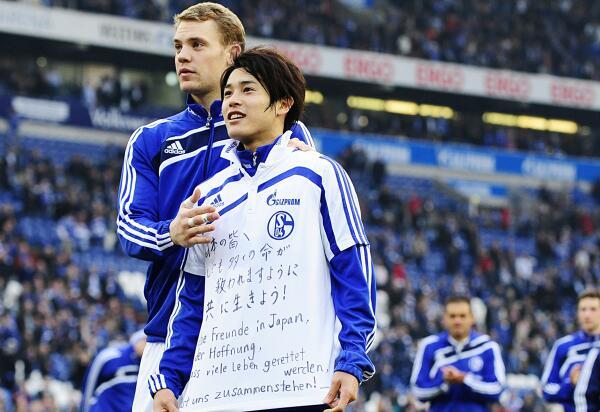 ENGO ENGO ENGO
adidas
adidas
GAZPROM
本の皆へ
も多くの命が
救われますように
共に生きよう!
be Freunde in Japan,
der Hoffnung,
ss viele Leben gerettet
werden,
t uns zusammenstehen!